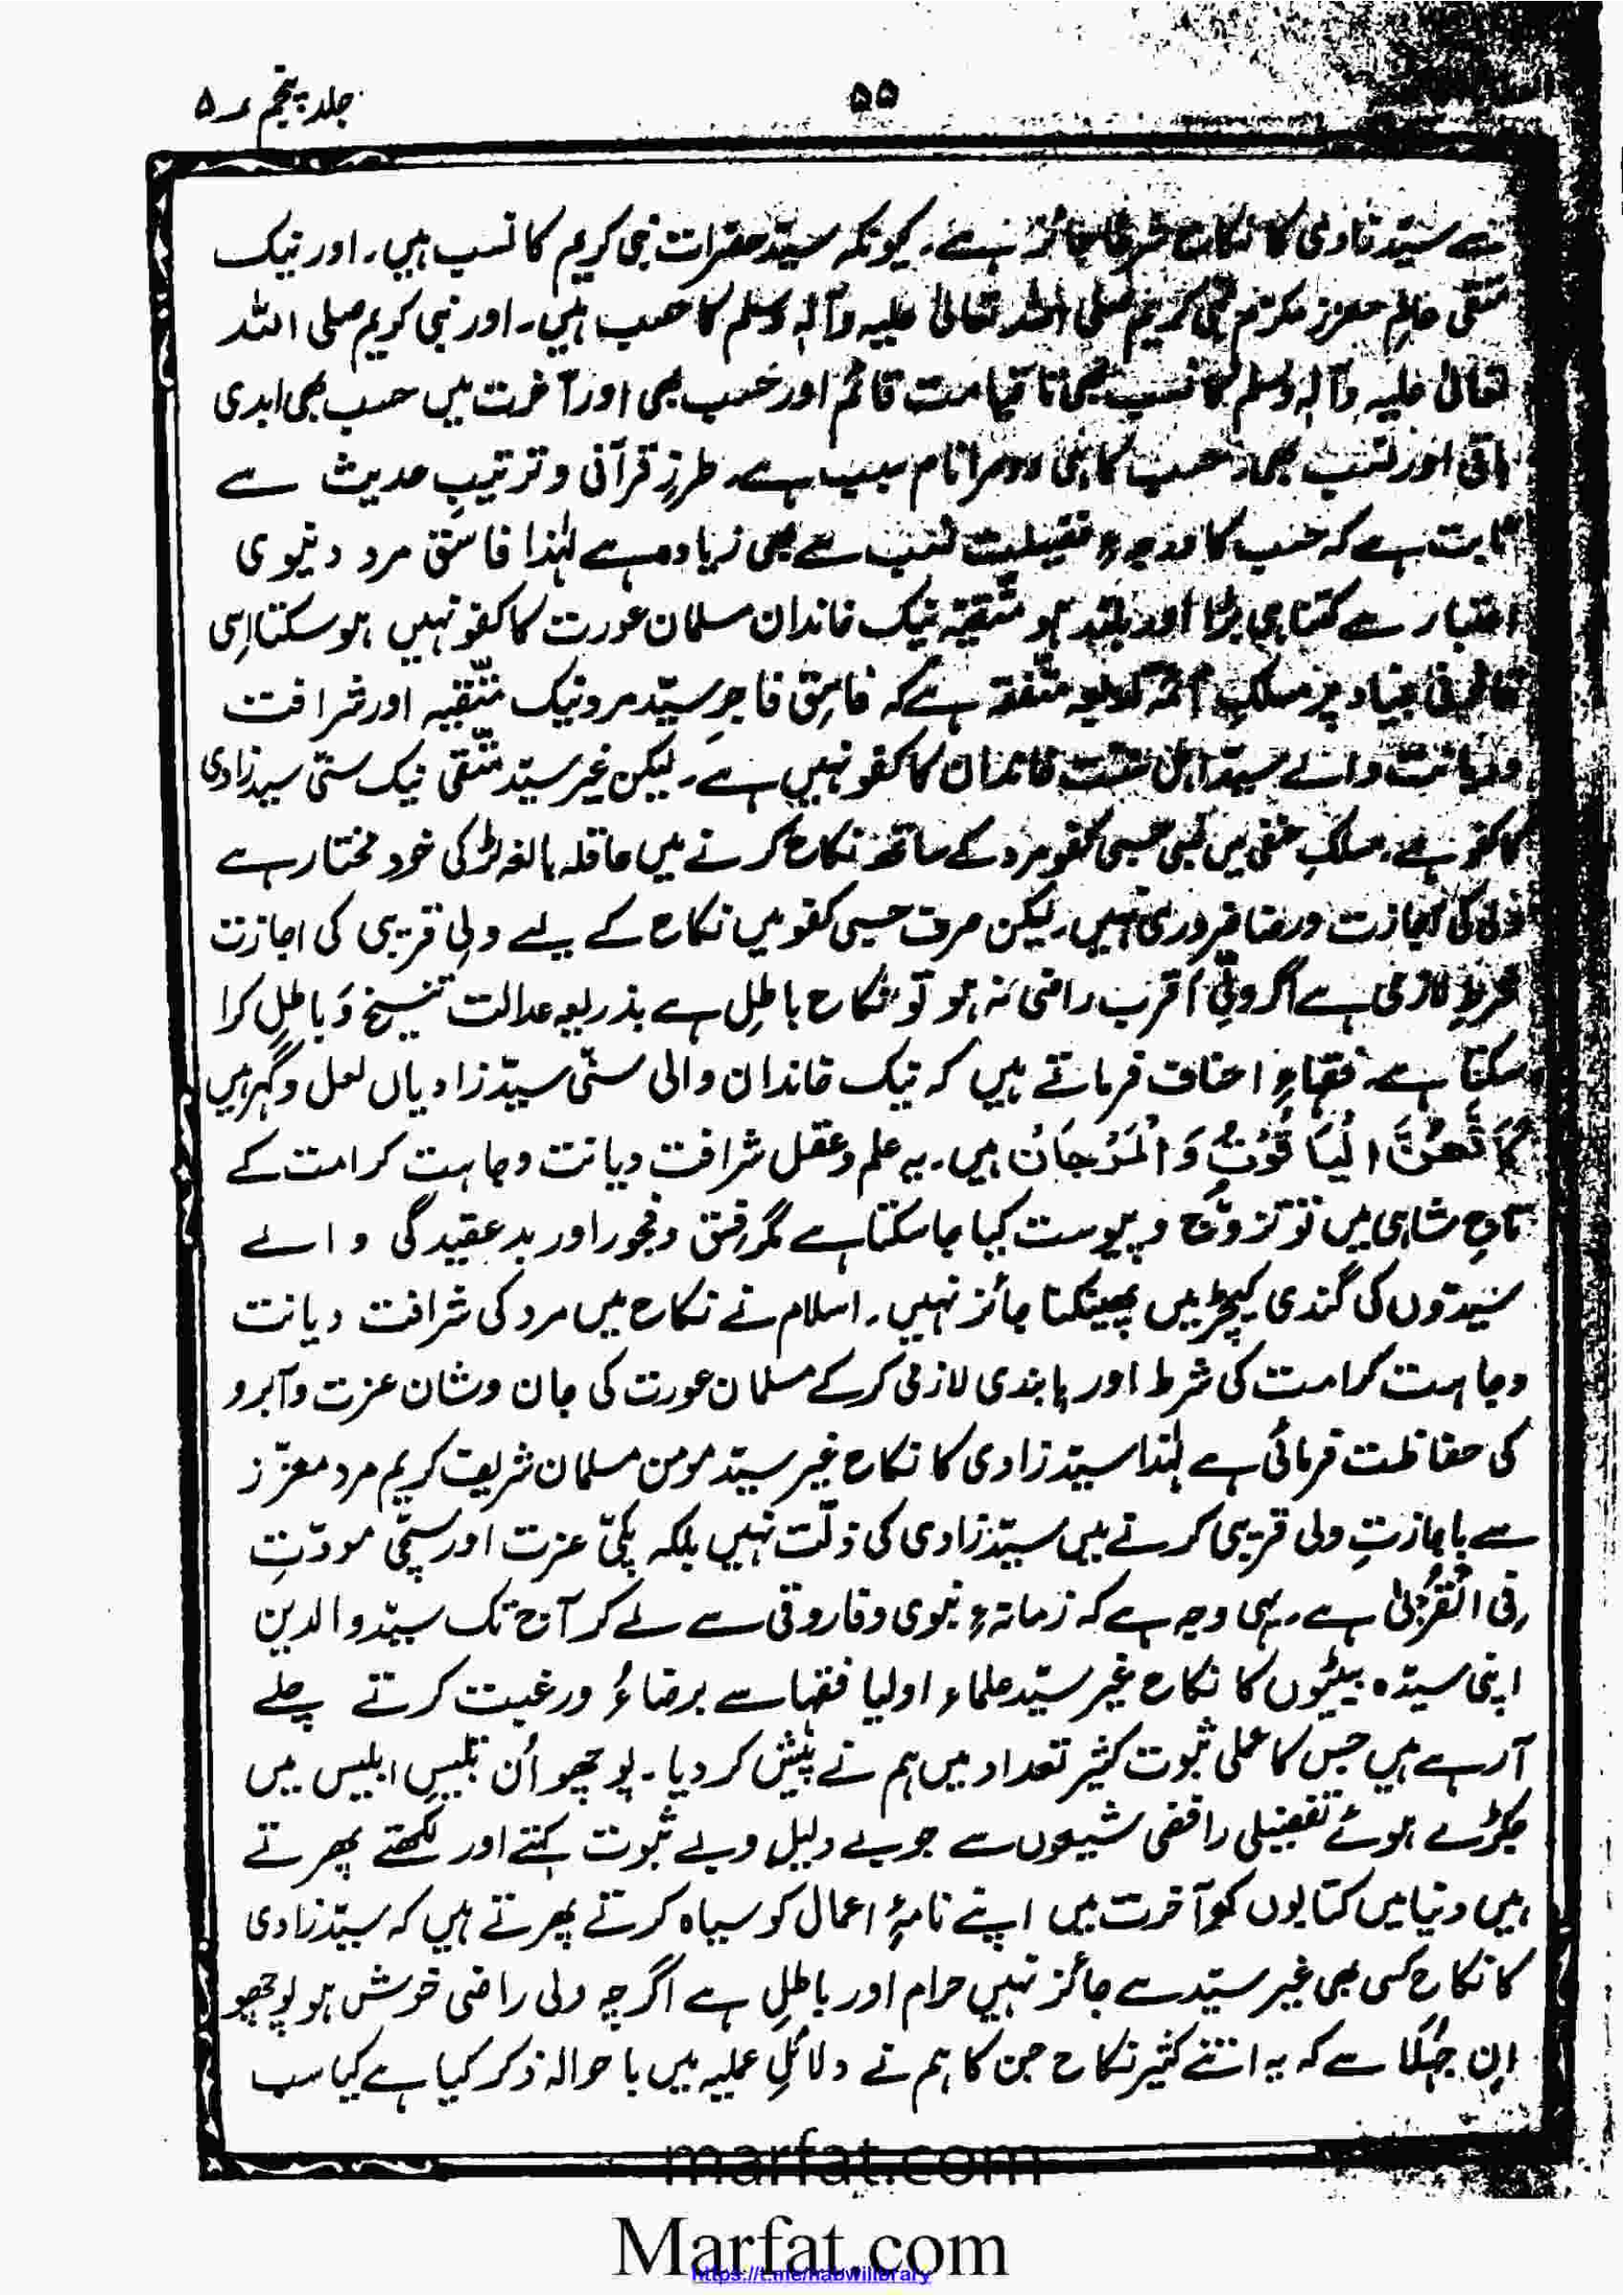 ۵۵
جلد پنجم ۵
سے سیّد زادی کا نکاح شرعًا جائز ہے۔ کیونکہ سیّد حضرات نبی کریم کا نسب ہیں۔ اور نیک
متقی عالم معزز مکرّم نبی کریم صلی اللہ تعالیٰ علیہ وآلہٖ وسلم کا حسب ہیں۔ اور نبی کریم صلی اللہ
تعالیٰ علیہ وآلہٖ وسلم کا نسب بھی تا قیامت قائم اور حسب بھی اور آخرت میں حسب بھی ابدی
باقی اور نسب بھی۔ حسب کا ہی دوسرا نام سبب ہے۔ طرزِ قرآنی و ترتیبِ حدیث سے
ثابت ہے کہ حسب کا درجہ ءِ فضیلت نسب سے بھی زیادہ ہے لہٰذا فاسق مرد دنیوی
اعتبار سے کتنا ہی بڑا اور بلند ہو متّقیہ نیک خاندان مسلمان عورت کا کفو نہیں ہو سکتا اِسی
بنیاد پر مسلکِ ائمّہ اربعہ متّفقہ ہے کہ فاسِق فاجِر سیّد مرد نیک متّقیہ اور شرافت
و دیانت والے سیّد اہلِ سنّت خاندان کا کفو نہیں ہے۔ لیکن غیر سیّد متّقی نیک سنّی سیدزادی
کا کفو ہے۔ مسلکِ حنفی میں نسبی حسبی کفو مرد کے ساتھ نکاح کرنے میں عاقلہ بالغہ لڑکی خود مختار ہے
ولی کی اجازت و رضا ضروری نہیں۔ لیکن صرف حسبی کفو میں نکاح کے لیے ولیِ قریبی کی اجازت
شرطِ لازمی ہے اگر ولیِّ اَقرب راضی نہ ہو تو نکاح باطِل ہے بذریعہ عدالت تنسیخ وَ باطِل کرا
سکتا ہے۔ فقہاءِ احناف فرماتے ہیں کہ نیک خاندان والی سنّی سیّد زادیاں لعل و گہر ہیں
كَاَنَّهُنَّ الْيَاقُوْتُ وَالْمَرْجَانُ ہیں۔ یہ علم و عقل شرافت دیانت وجاہت کرامت کے
تاجِ شاہی میں تو تزوُّج و پیوست کیا جا سکتا ہے مگر فِسق و فجور اور بد عقیدگی والے
سَیّدوں کی گندی کیچڑ میں پھینکنا جائز نہیں۔ اسلام نے نکاح میں مرد کی شرافت دیانت
وجاہت کرامت کی شرط اور پابندی لازمی کرکے مسلمان عورت کی جان و شان عزت و آبرو
کی حفاظت فرمائی ہے لہٰذا سیّد زادی کا نکاح غیر سیّد مومن مسلمان شریف کریم مرد معزّز
سے باجازتِ ولی قریبی کرنے میں سیّد زادی کی ذلّت نہیں بلکہ پکّی عزت اور سچّی مودّتِ
فِی الْقُرْبیٰ ہے۔ یہی وجہ ہے کہ زمانہءِ نبوی و فاروقی سے لے کر آج تک سیّد والدین
اپنی سیّدہ بیٹیوں کا نکاح غیر سیّد علماء اولیا فقہا سے برضاءُ و رغبت کرتے چلے
آرہے ہیں جس کا عملی ثبوت کثیر تعداد میں ہم نے پیش کر دیا۔ پوچھو اُن تلبیسِ ابلیس میں
جکڑے ہوئے تفضیلی رافضی شیعوں سے جو بے دلیل و بے ثبوت کہتے اور لکھتے پھرتے
ہیں دنیا میں کتابوں کو آخرت میں اپنے نامۂِ اعمال کو سیاہ کرتے پھرتے ہیں کہ سیّد زادی
کا نکاح کسی بھی غیر سیّد سے جائز نہیں حرام اور باطِل ہے اگرچہ ولی راضی خوش ہو پوچھو
اِن جُہَلَا سے کہ یہ اتنے کثیر نکاح جن کا ہم نے دلائلِ عملیہ میں با حوالہ ذکر کیا ہے کیا سب
marfat.com
Marfat.com
https://t.me/nabwilibrary